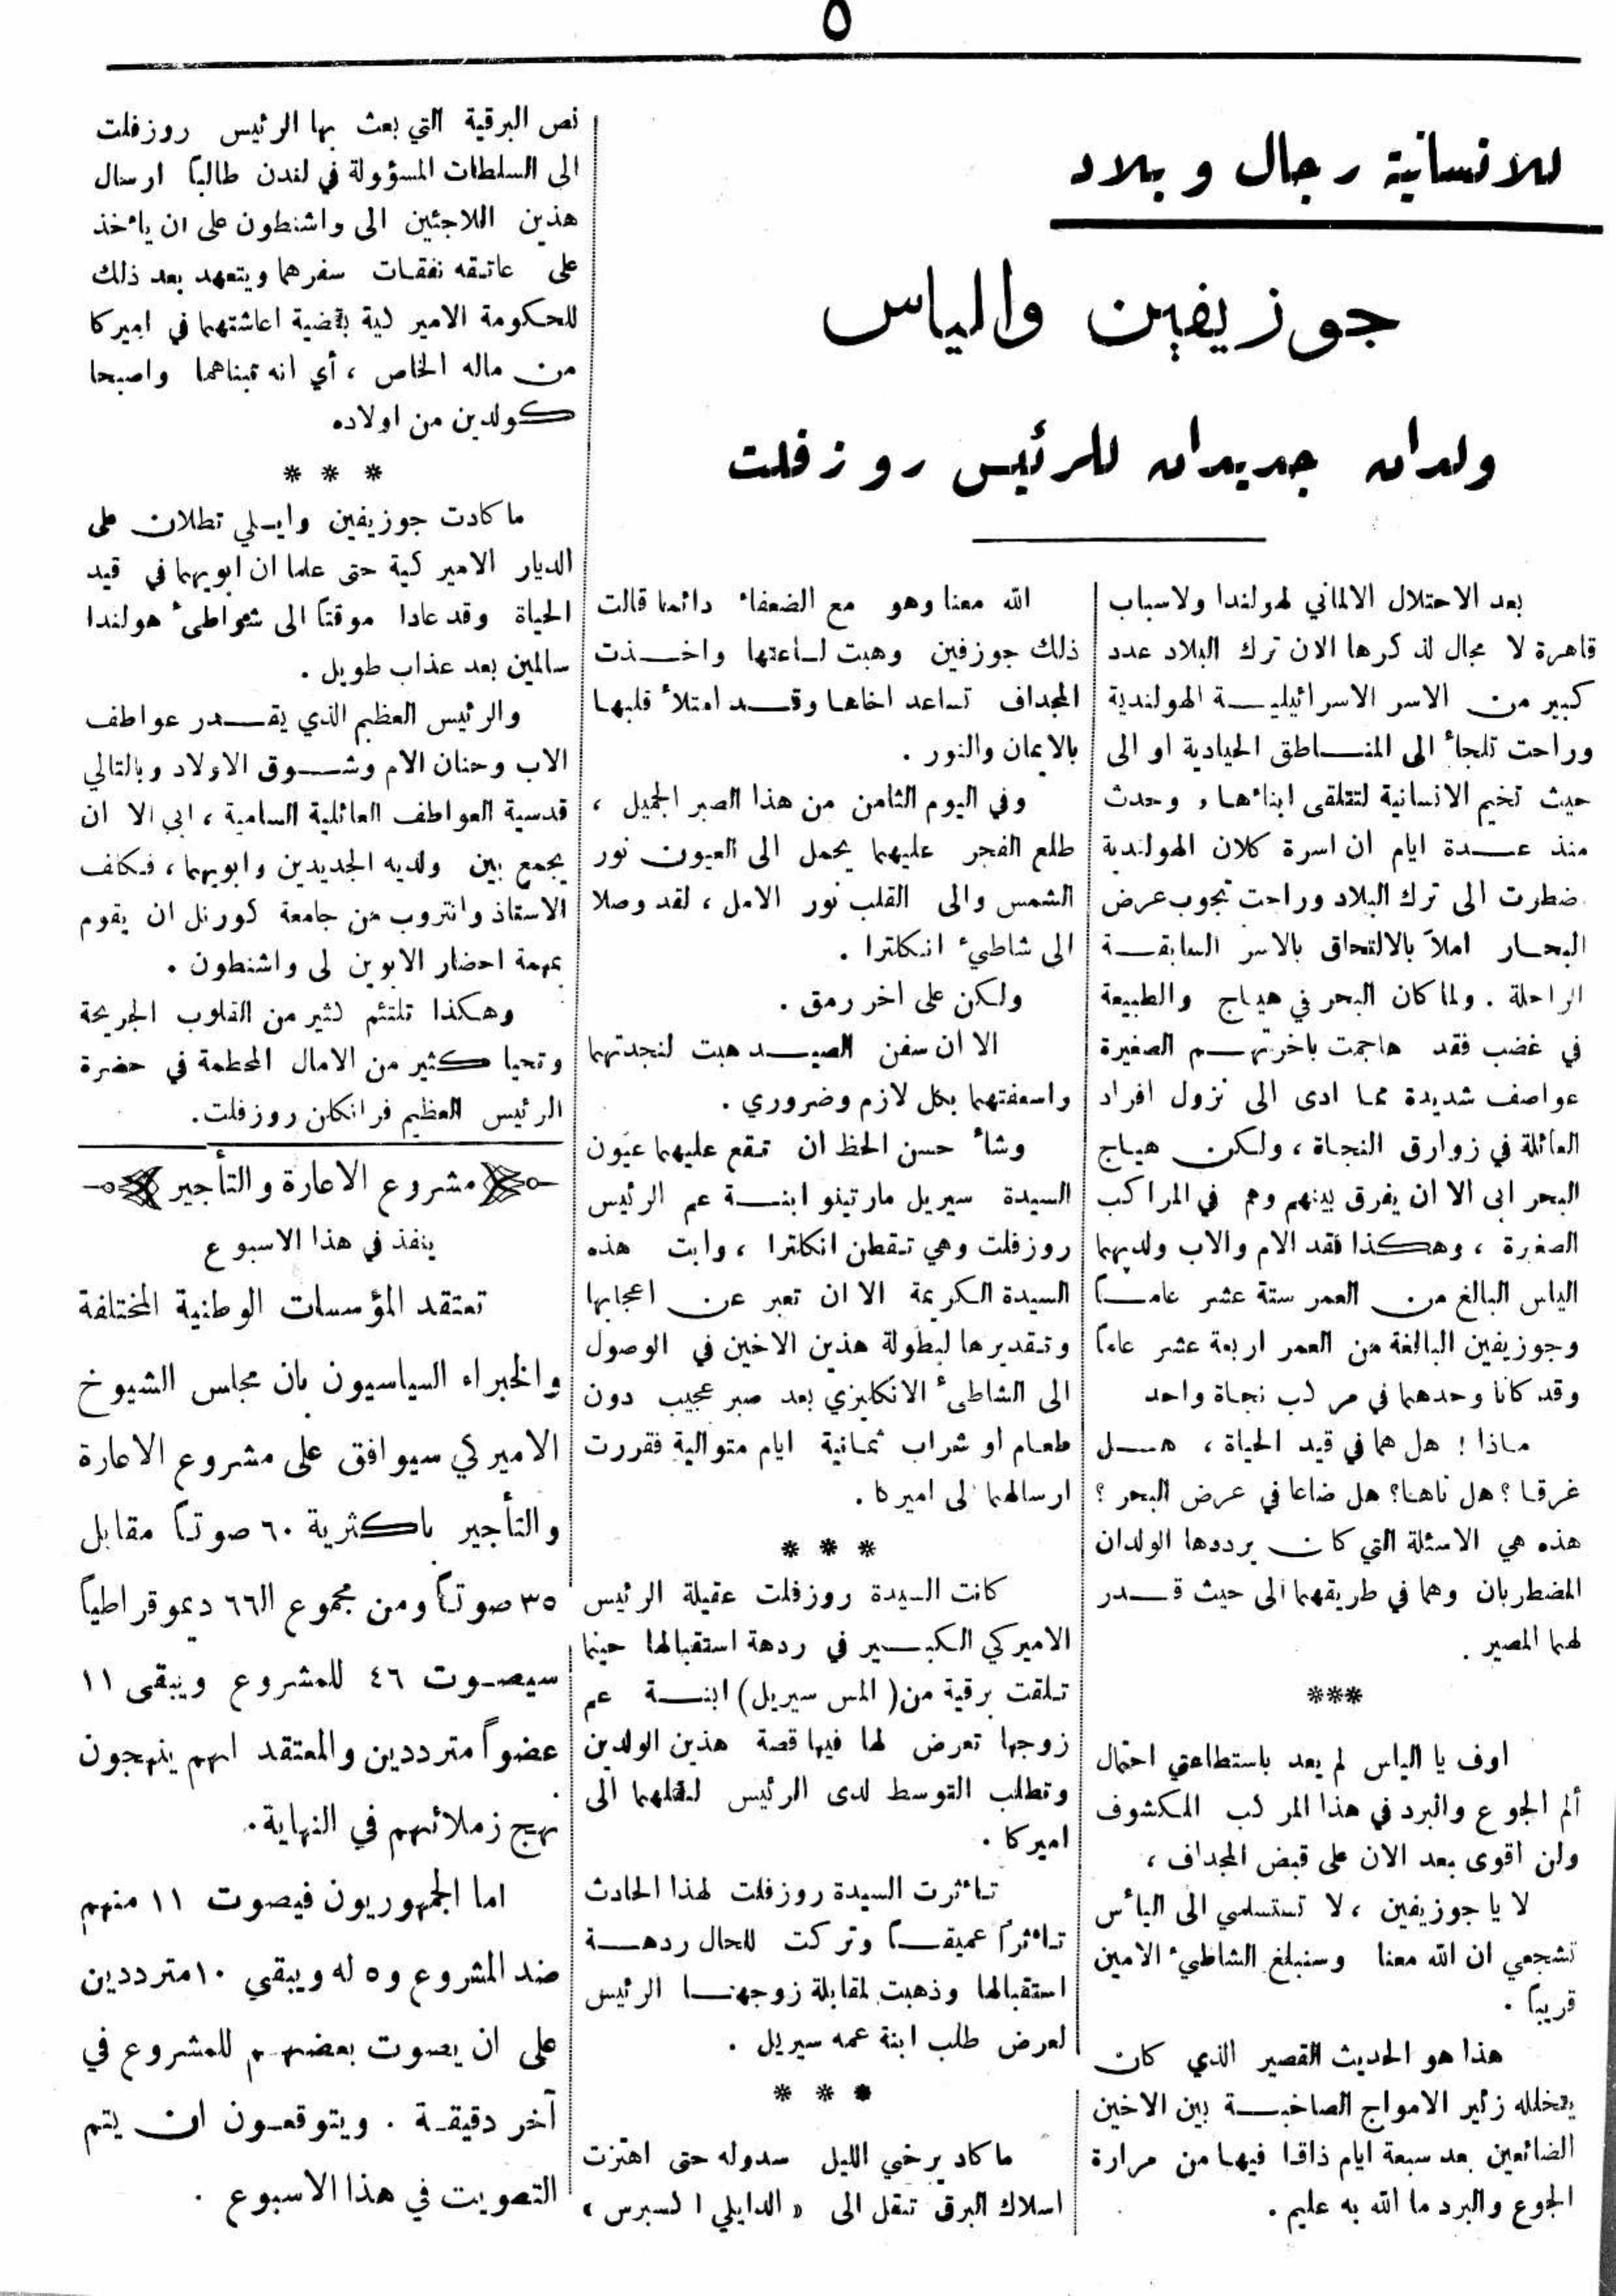 ٥
للانسانية رجال وبلاد
جوزيفين والياس
ولدان جديدان للرئيس روزفلت
بعد الاحتلال الالماني لهولندا ولاسباب
قاهرة لا مجال لذكرها الان ترك البلاد عدد
كبير من الاسر الاسرائيلية الهولندية
وراحت تلجأ الى المناطق الحيادية او الى
حيث تخيم الانسانية لتتلقى ابناءها، وحدث
منذ عدة ايام ان اسرة كلان الهولندية
ضطرت الى ترك البلاد وراحت تجوب عرض
البحار املاً بالالتحاق بالاسر السابقة
الراحلة . ولما كان البحر في هياج والطبيعة
في غضب فقد هاجمت باخرتهم الصغيرة
عواصف شديدة مما ادى الى نزول افراد
العائلة في زوارق النجاة ، ولكن هياج
البحر ابى الا ان يفرق بينهم وهم في المراكب
الصغيرة ، وهكذا فقد الام والاب ولديهما
الياس البالغ من العمر ستة عشر عاماً
وجوزيفين البالغة من العمر اربعة عشر عاماً
وقد كانا وحدهما في مركب نجاة واحد
ماذا ! هل هما في قيد الحياة ، هل
غرقا ؟ هل تاها؟ هل ضاعا في عرض البحر ؟
هذه هي الاسئلة التي كان يرددها الولدان
المضطربان وهما في طريقهما الى حيث قدر
لهما المصير .
***
اوف يا الياس لم يعد باستطاعتي احتمال
ألم الجوع والبرد في هذا المركب المكشوف
ولن اقوى بعد الان على قبض المجداف ،
لا يا جوزيفين ، لا تستسلمي الى اليأس
تشجعي ان الله معنا وسنبلغ الشاطيء الامين
قريباً .
هذا هو الحديث القصير الذي كان
يتخلله زئير الامواج الصاخبة بين الاخين
الضائعين بعد سبعة ايام ذاقا فيها من مرارة
الجوع والبرد ما الله به عليم .
الله معنا وهو مع الضعفاء دائما قالت
ذلك جوزفين وهبت لساعتها واخذت
المجداف تساعد اخاها وقد امتلأ قلبها
بالايمان والنور .
وفي اليوم الثامن من هذا الصبر الجميل ،
طلع الفجر عليهما يحمل الى العيون نور
الشمس والى القلب نور الامل ، لقد وصلا
الى شاطيء انكلترا .
ولكن على اخر رمق .
الا ان سفن الصيد هبت لنجدتهما
واسعفتهما بكل لازم وضروري .
وشاء حسن الحظ ان تقع عليهما عيون
السيدة سيريل مارتينو ابنة عم الرئيس
روزفلت وهي تقطن انكلترا ، وابت هذه
السيدة الكريمة الا ان تعبر عن اعجابها
وتقديرها لبطولة هذين الاخين في الوصول
الى الشاطىء الانكليزي بعد صبر عجيب دون
طعام او شراب ثمانية ايام متوالية فقررت
ارسالهما لى اميركا .
* * *
كانت السيدة روزفلت عقيلة الرئيس
الاميركي الكبير في ردهة استقبالها حينما
تلقت برقية من (المس سيريل) ابنة عم
زوجها تعرض لها فيها قصة هذين الولدين
وتطلب التوسط لدى الرئيس لنقلهما الى
اميركا .
تاءثرت السيدة روزفلت لهذا الحادث
تاءثراً عميقاً وتركت للحال ردهة
استقبالها وذهبت لمقابلة زوجها الرئيس
لعرض طلب ابنة عمه سيريل .
* * *
ما كاد يرخي الليل سدوله حتى اهتزت
اسلاك البرق تنقل الى « الدايلي اكسبرس »
نص البرقية التي بعث بها الرئيس روزفلت
الى السلطات المسؤولة في لندن طالباً ارسال
هذين اللاجئين الى واشنطون على ان ياءخذ
على عاتقه نفقات سفرهما ويتعهد بعد ذلك
للحكومة الاميركية بقضية اعاشتهما في اميركا
من ماله الخاص ، أي انه تبناهما واصبحا
كولدين من اولاده
* * *
ما كادت جوزيفين وايلي تطلان على
الديار الاميركية حتى علما ان ابويهما في قيد
الحياة وقد عادا موقتاً الى شواطىء هولندا
سالمين بعد عذاب طويل .
والرئيس العظيم الذي يقدر عواطف
الاب وحنان الام وشوق الاولاد وبالتالي
قدسية العواطف العائلية السامية ، ابى الا ان
يجمع بين ولديه الجديدين وابويهما ، فكلف
الاستاذ وانتروب من جامعة كورنل ان يقوم
بمهمة احضار الابوين لى واشنطون .
وهكذا تلتئم كثير من القلوب الجريحة
وتحيا كثير من الامال المحطمة في حضرة
الرئيس العظيم فرانكلن روزفلت.
مشروع الاعارة والتأجير
ينفذ في هذا الاسبوع
تعتقد المؤسسات الوطنية المختلفة
والخبراء السياسيون بان مجلس الشيوخ
الاميركي سيوافق على مشروع الاعارة
والتأجير باكثرية ٦٠ صوتاً مقابل
٣٥ صوتاً ومن مجموع ال٦٦ ديموقراطياً
سيصوت ٤٦ للمشروع ويبقى ١١
عضواً مترددين والمعتقد انهم ينهجون
نهج زملائهم في النهاية .
اما الجمهوريون فيصوت ١١ منهم
ضد المشروع و٥ له ويبقى ١٠ مترددين
على ان يصوت بعضهم للمشروع في
آخر دقيقة . ويتوقعون ان يتم
التصويت في هذا الاسبوع .